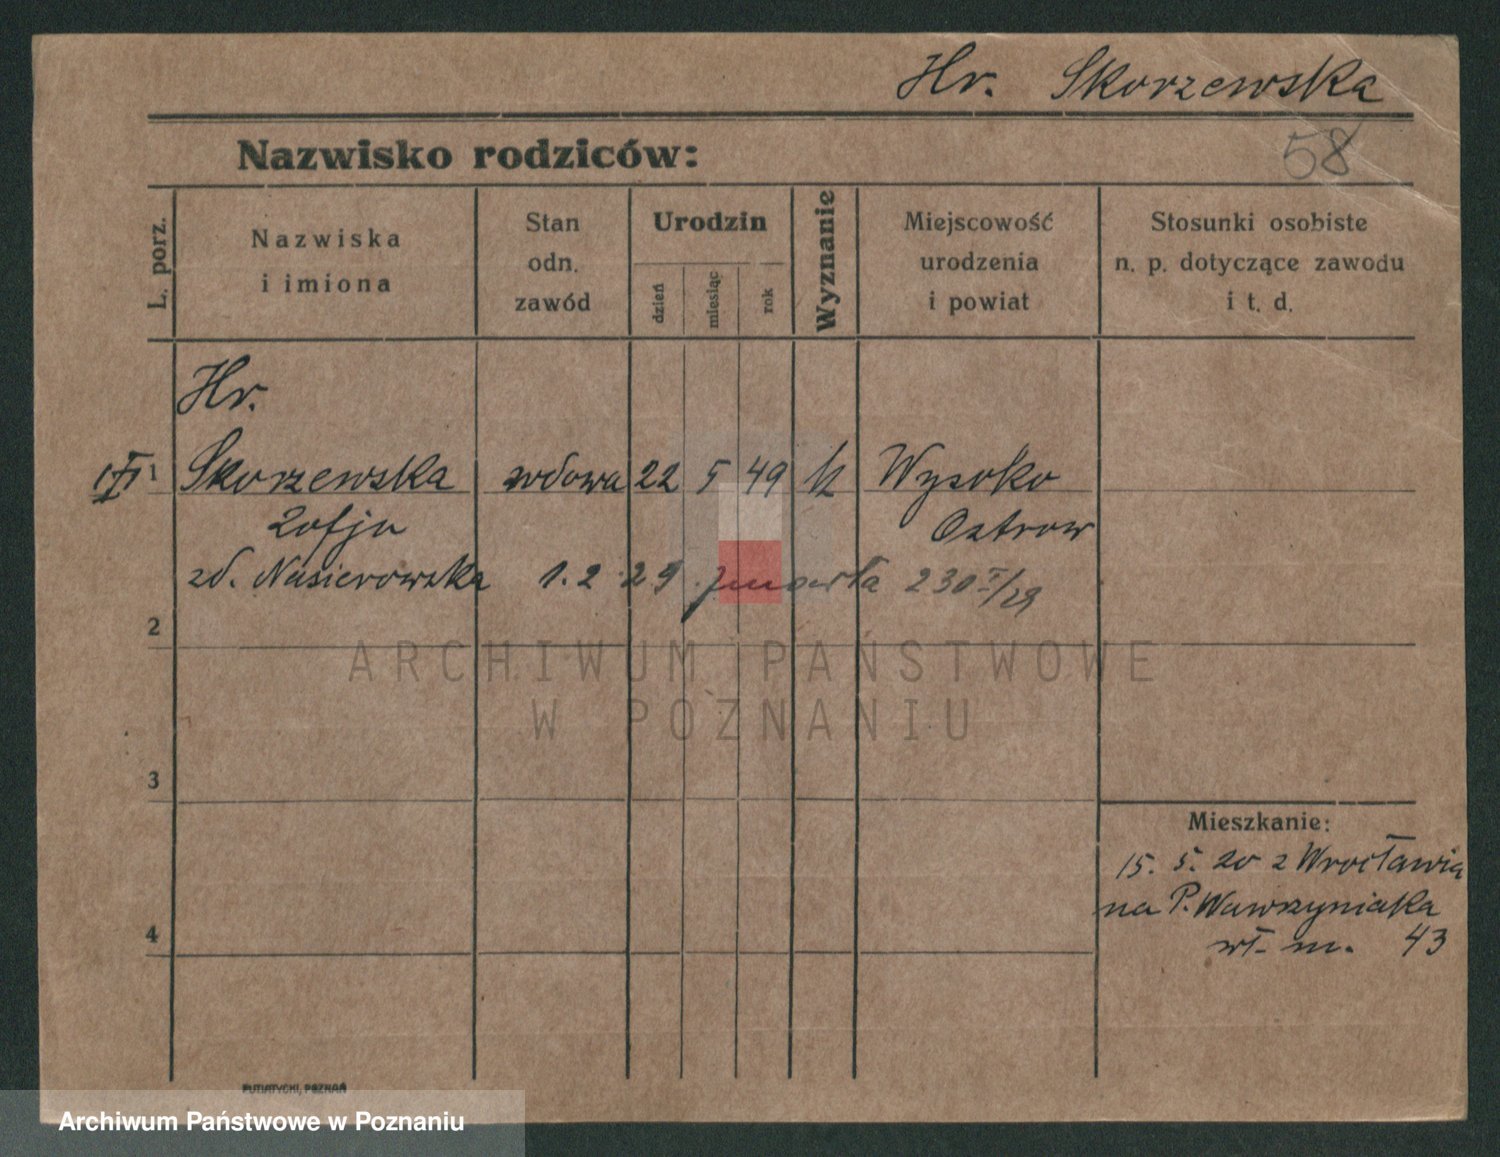 Hr. Skorzewska
58
Nazwisko rodziców:
L. porz.
Nazwiska
i imiona
Stan
odn.
zawód
Urodzin
dzień
miesiąc
rok
Wyznanie
Miejscowość
urodzenia
i powiat
Stosunki osobiste
n. p. dotyczące zawodu
i t. d.
Hr.
1 Skorzewska wdowa 22 5 49 k Wysoko
Zofja Ostrow
zd. Nasierowska 1.2.29 zmarła 230 I/29
2
ARCHIWUM PAŃSTWOWE
W POZNANIU
3
Mieszkanie:
15. 5. 20 z Wrocławia
na P. Wawrzyniaka
4
wł. m. 43
PUTIATYCKI, POZNAŃ
Archiwum Państwowe w Poznaniu